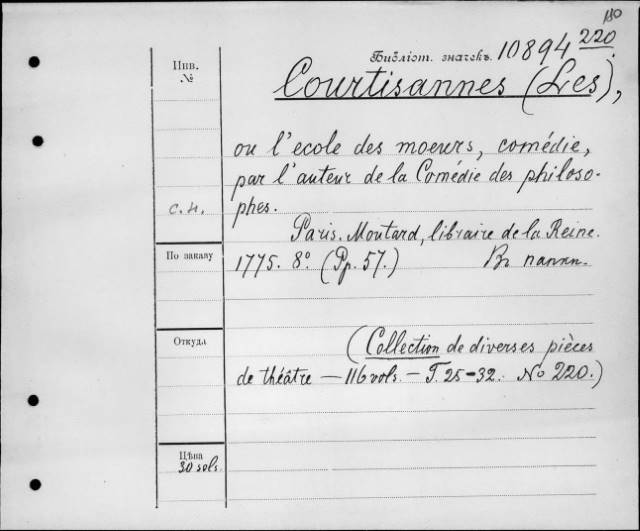 110
Библіот. значекъ. 10894 220.
Инв.
№
Courtisannes (Les),
ou l'ecole des moeurs, comédie,
par l'auteur de la Comédie des philoso-
с.н. phes.
Paris. Moutard, libraire de la Reine.
По заказу
1775. 8º. (Pp. 57.) Въ папкѣ.
Откуда
(Collection de diverses pièces
de théâtre — 116 vols. — T. 25-32. No 220.)
Цѣна
30 sols.